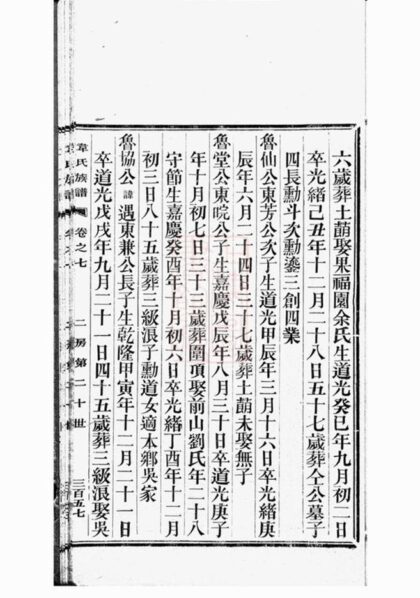 六歲葬土莆娶果福園余氏生道光癸巳年九月初二日
卒光緒己丑年十二月二十八日五十七歲葬仝公墓子
四長勳斗次勳鎏三創四業
魯仙公東芳公次子生道光甲辰年三月十六日卒光緒庚
辰年六月二十四日三十七歲葬土莆未娶無子
魯堂公東晥公子生嘉慶戊辰年八月三十日卒道光庚子
年十月初七日三十三歲葬圍項娶前山劉氏年二十八
守節生嘉慶癸酉年十月初六日卒光緒丁酉年十二月
初三日八十五歲葬三級浪子勳道女適本鄉吳家
魯協公諱遇東兼公長子生乾隆甲寅年十二月二十一日
卒道光戊戌年九月二十一日四十五歲葬三級浪娶吳
韋氏族譜 卷之七 二房第二十世 三百五七